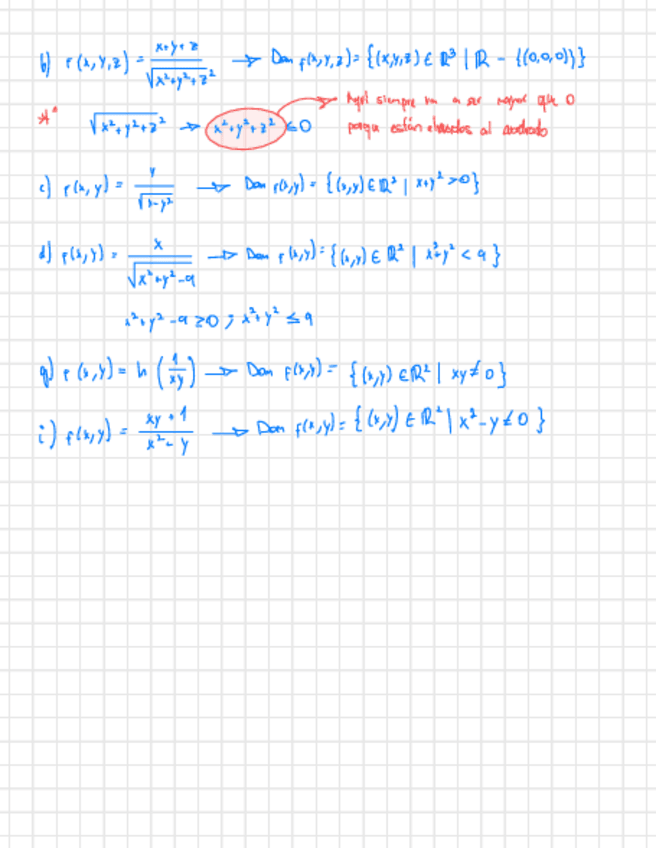 b) f(x,y,z) = x+y+z / √x²+y²+z² → Dom f(x,y,z) = {(x,y,z) ∈ ℝ³ | ℝ - {(0,0,0)}}
* √x²+y²+z² → x²+y²+z² ≤ 0 siempre va a ser mayor que 0
porque están elevados al cuadrado
c) f(x,y) = y / √x-y² → Dom f(x,y) = {(x,y) ∈ ℝ² | x+y² > 0}
d) f(x,y) = x / √x²+y²-9 → Dom f(x,y) = {(x,y) ∈ ℝ² | x²+y² < 9}
x²+y²-9 ≥ 0 ; x²+y² ≤ 9
g) f(x,y) = ln (1/xy) → Dom f(x,y) = {(x,y) ∈ ℝ² | xy ≠ 0}
i) f(x,y) = xy+1 / x²-y → Dom f(x,y) = {(x,y) ∈ ℝ² | x²-y ≠ 0}